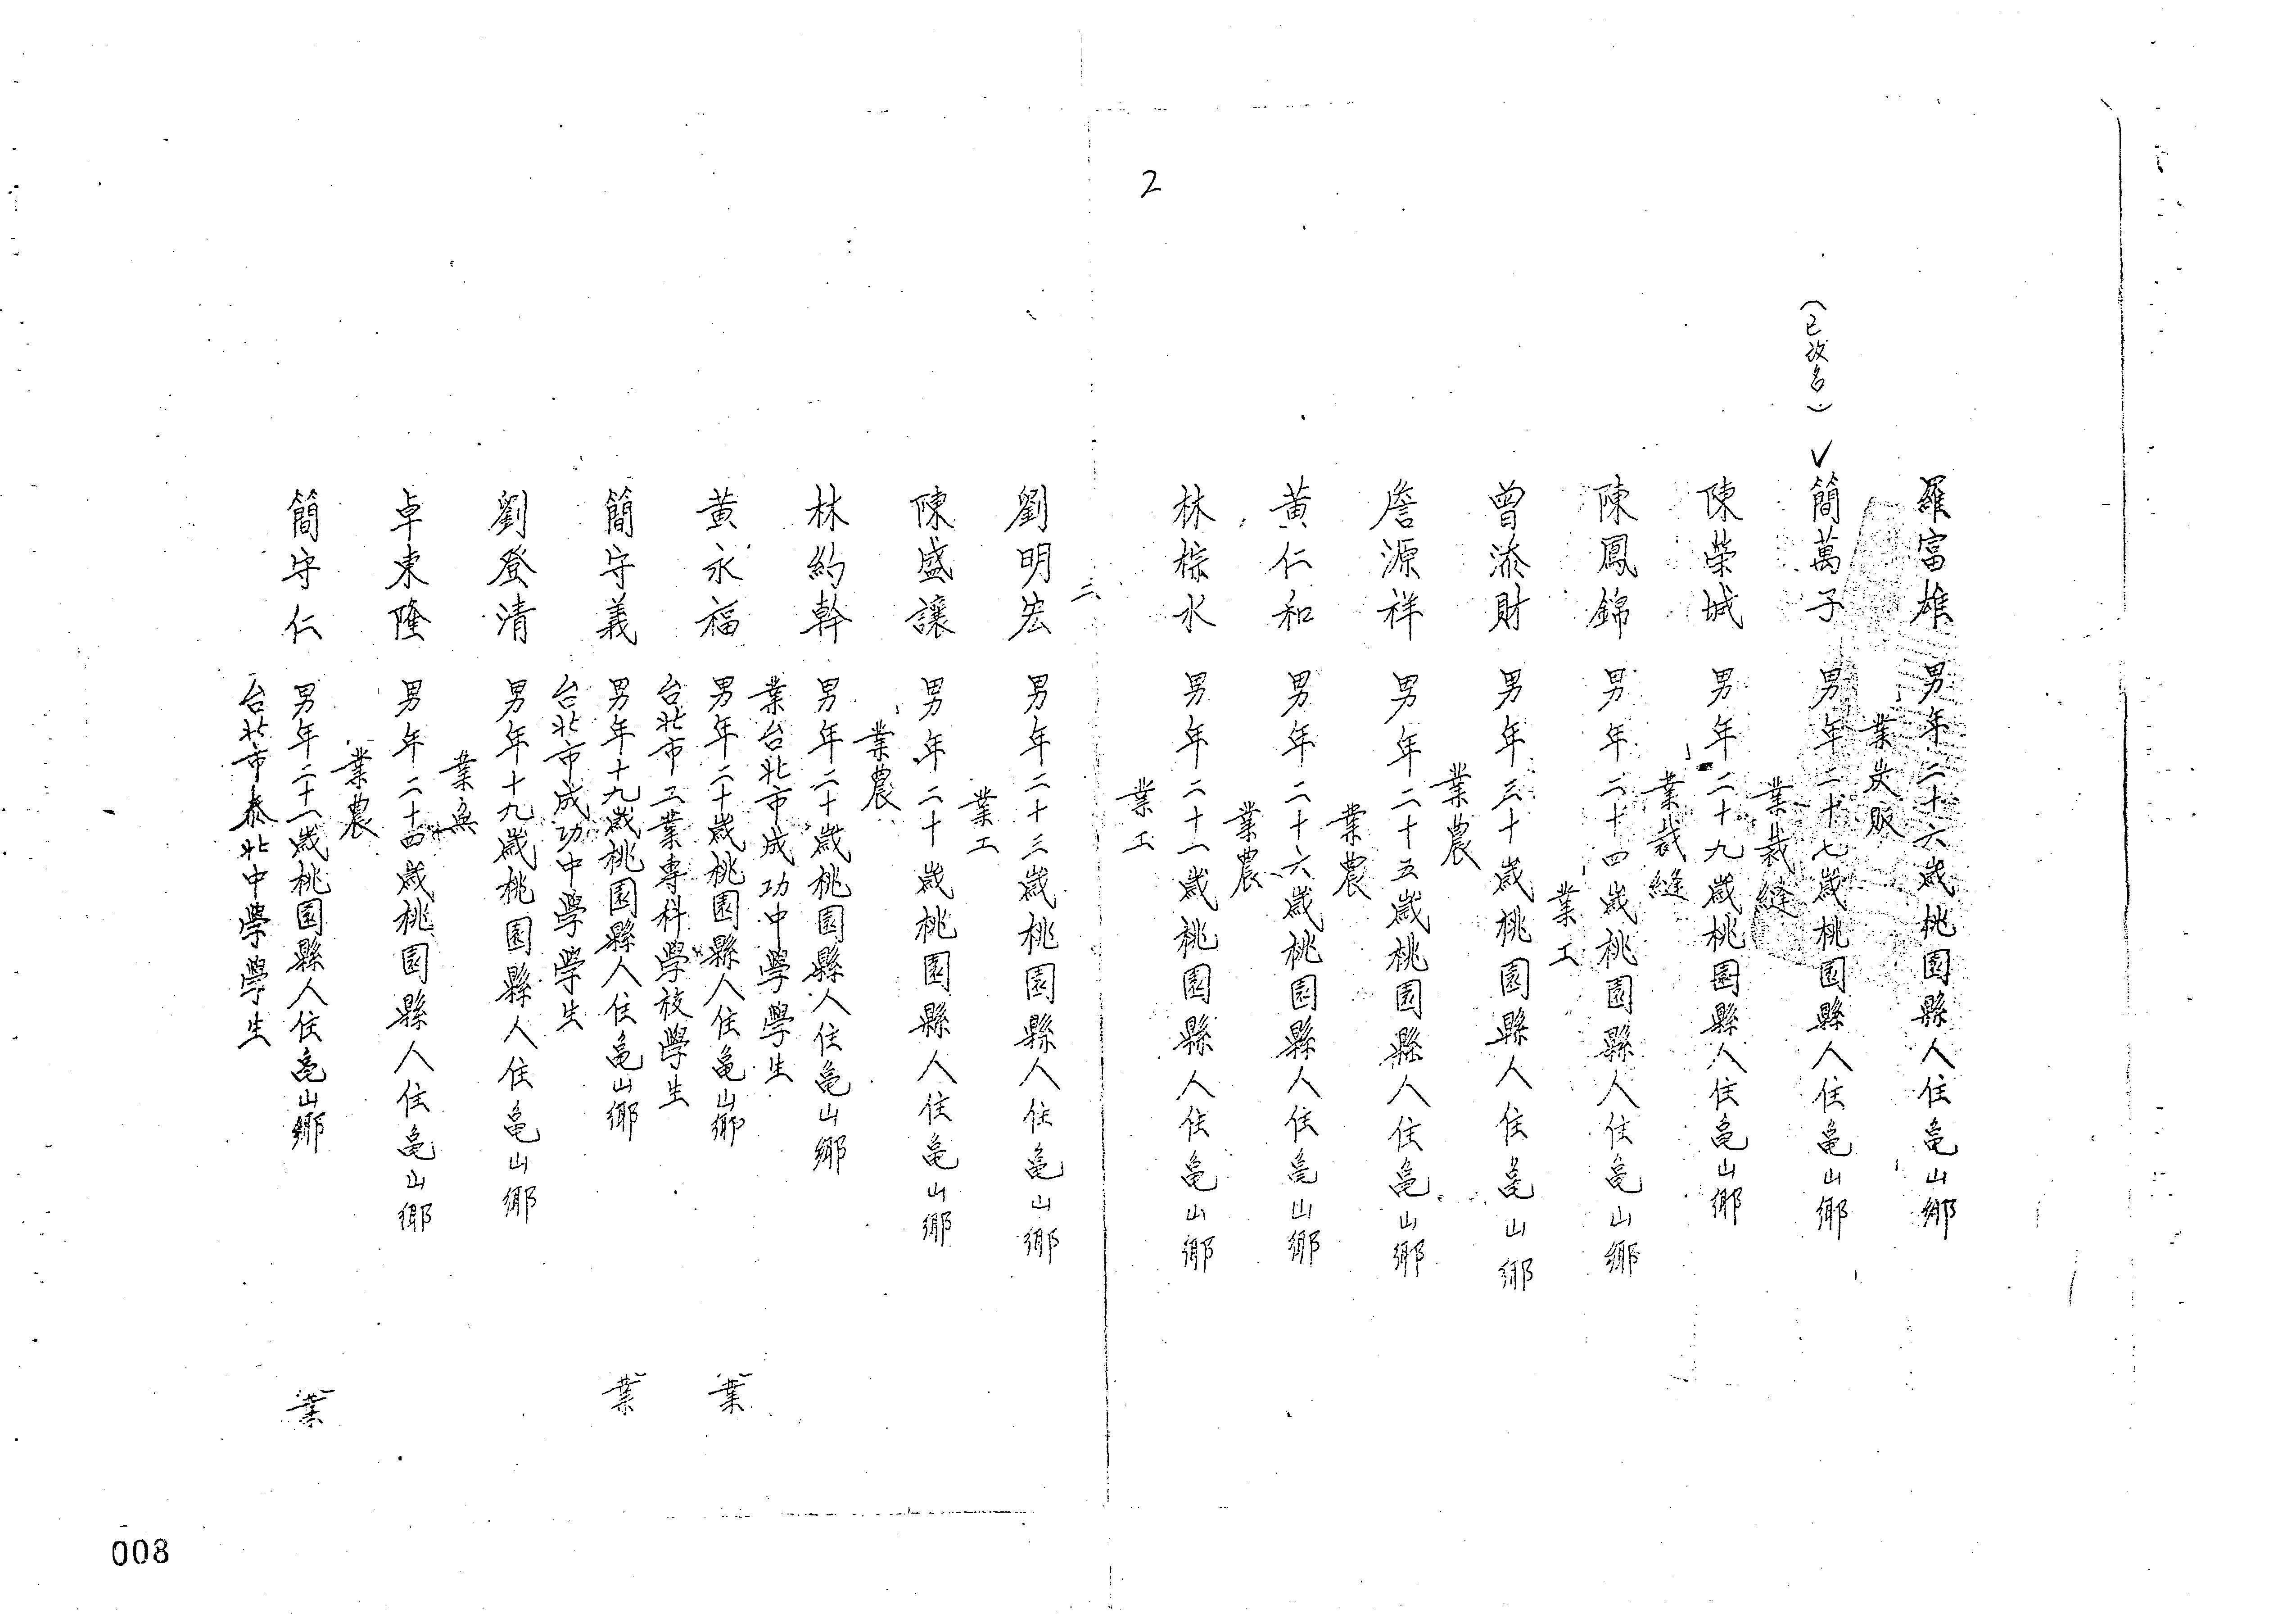 2
羅富雄 男年二十六歲桃園縣人住龜山鄉
業炭販
(已改名)✓簡萬子 男年二十七歲桃園縣人住龜山鄉
業裁縫
陳榮城 男年二十九歲桃園縣人住龜山鄉
業裁縫
陳鳳錦 男年二十四歲桃園縣人住龜山鄉
業工
曾添財 男年三十歲桃園縣人住龜山鄉
業農
詹源祥 男年二十五歲桃園縣人住龜山鄉
業農
黃仁和 男年二十六歲桃園縣人住龜山鄉
業農
林棕水 男年二十一歲桃園縣人住龜山鄉
業工
三
劉明宏 男年二十三歲桃園縣人住龜山鄉
業工
陳盛讓 男年二十歲桃園縣人住龜山鄉
業農
林約幹 男年二十歲桃園縣人住龜山鄉
業台北市成功中學學生
黃永福 男年二十歲桃園縣人住龜山鄉 業
台北市工業專科學校學生
簡守義 男年十九歲桃園縣人住龜山鄉 業
台北市成功中學學生
劉登清 男年十九歲桃園縣人住龜山鄉
業無
卓東隆 男年二十四歲桃園縣人住龜山鄉
業農
簡守仁 男年二十一歲桃園縣人住龜山鄉 業
台北市泰北中學學生
008